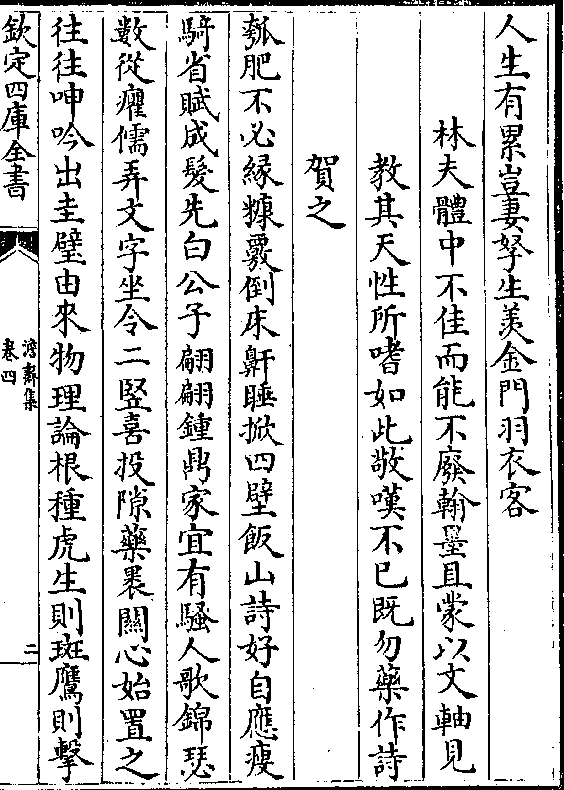 人生有累豈妻孥生羨金門羽衣客
林夫體中不佳而能不廢翰墨且蒙以文軸見
教其天性所嗜如此敬嘆不已既勿藥作詩
賀之
瓠肥不必縁糠覈倒床鼾睡掀四壁飯山詩好自應瘦
騎省賦成髮先白公子翩翩鍾鼎家宜有騷人歌錦瑟
數從癯儒弄文字坐令二竪喜投隙藥褁關心始置之
往往呻吟出圭璧由來物理論根種虎生則斑鷹則擊
欽定四庫全書
澹齋集
卷四
二